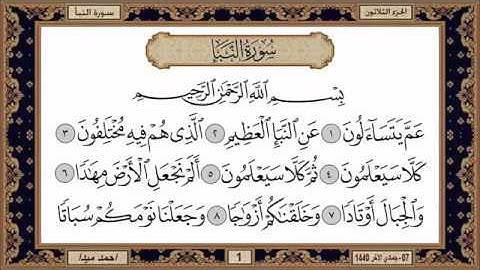 الجزء الثلاثون
سورة النبأ
سُورَةُ النَّبَإِ
بِسْمِ ٱللَّهِ ٱلرَّحْمَٰنِ ٱلرَّحِيمِ
عَمَّ يَتَسَآءَلُونَ ١ عَنِ ٱلنَّبَإِ ٱلْعَظِيمِ ٢ ٱلَّذِى هُمْ فِيهِ مُخْتَلِفُونَ ٣
كَلَّا سَيَعْلَمُونَ ٤ ثُمَّ كَلَّا سَيَعْلَمُونَ ٥ أَلَمْ نَجْعَلِ ٱلْأَرْضَ مِهَٰدًا ٦
وَٱلْجِبَالَ أَوْتَادًا ٧ وَخَلَقْنَٰكُمْ أَزْوَٰجًا ٨ وَجَعَلْنَا نَوْمَكُمْ سُبَاتًا
07-جمادي الآخر 1440
1
احمد